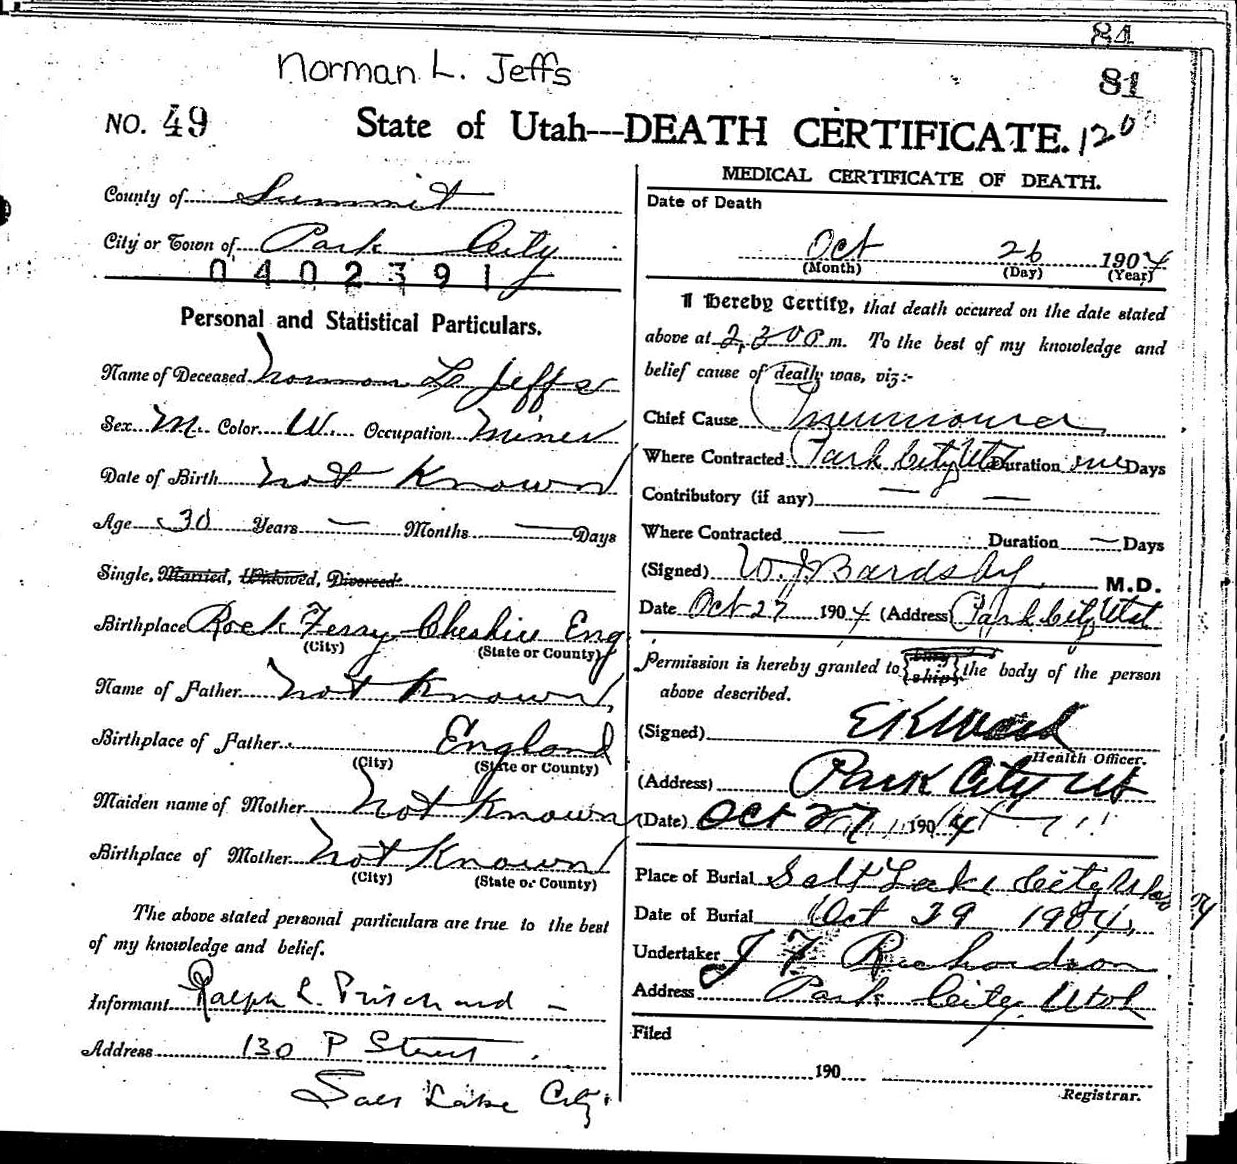 84
81
Norman L. Jeffs
NO. 49
State of Utah---DEATH CERTIFICATE.
120
County of Summit
City or Town of Park City
0402391
Personal and Statistical Particulars.
Name of Deceased Norman L Jeffs
Sex M. Color W. Occupation Miner
Date of Birth Not Known
Age 30 Years — Months — Days
Single, Married, Widowed, Divorced:
Birthplace Rock Ferry Cheshire Eng
(City) (State or County)
Name of Father Not Known
Birthplace of Father England
(City) (State or County)
Maiden name of Mother Not Known
Birthplace of Mother Not Known
(City) (State or County)
The above stated personal particulars are true to the best
of my knowledge and belief.
Informant Ralph L. Prichard —
Address 130 P Street
Salt Lake City.
MEDICAL CERTIFICATE OF DEATH.
Date of Death
Oct 26 1904
(Month) (Day) (Year)
I hereby Certify, that death occured on the date stated
above at 2,30 P m. To the best of my knowledge and
belief cause of death was, viz:-
Chief Cause Pneumonia
Where Contracted Park City Utah Duration Days
Contributory (if any) — —
Where Contracted — Duration — Days
(Signed) W. J Bardsby M.D.
Date Oct 27 1904 (Address) Park City Utah
Permission is hereby granted to {bury ship} the body of the person
above described.
(Signed) E K Ward
Health Officer.
(Address) Park City Ut
(Date) Oct 27 1904
Place of Burial Salt Lake City Utah
Date of Burial Oct 29 1904,
Undertaker J F Richardson
Address Park City Utah
Filed
190
Registrar.